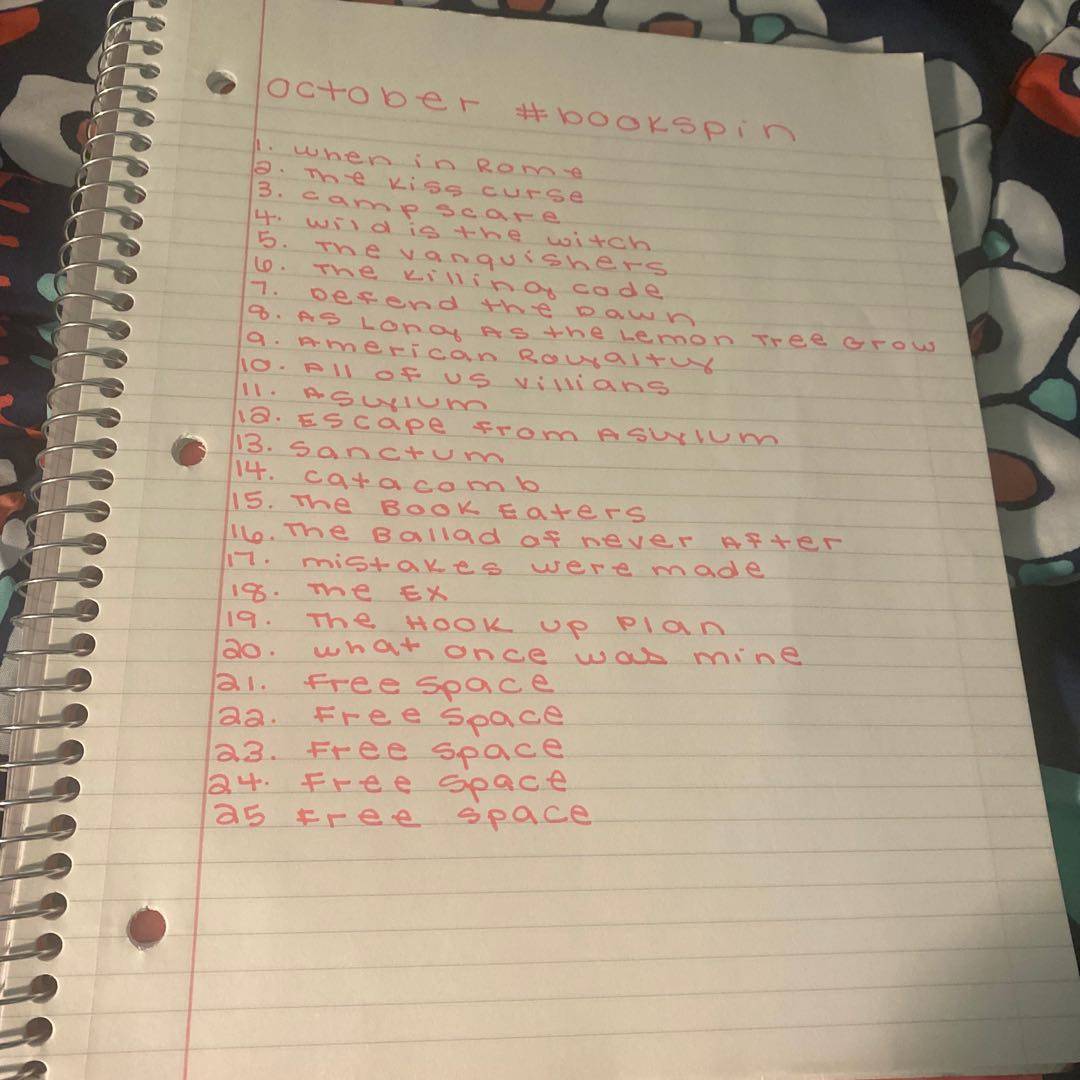 October #bookspin
1. When in Rome
2. The Kiss Curse
3. Camp Scare
4. Wild is the Witch
5. The Vanquishers
6. The Killing Code
7. Defend the Dawn
8. As Long As the Lemon Tree Grow
9. American Royalty
10. All of Us Villians
11. Asylum
12. Escape From Asylum
13. Sanctum
14. Catacomb
15. The Book Eaters
16. The Ballad of Never After
17. Mistakes Were Made
18. The Ex
19. The Hook Up Plan
20. What Once Was Mine
21. Free Space
22. Free Space
23. Free Space
24. Free Space
25 Free Space